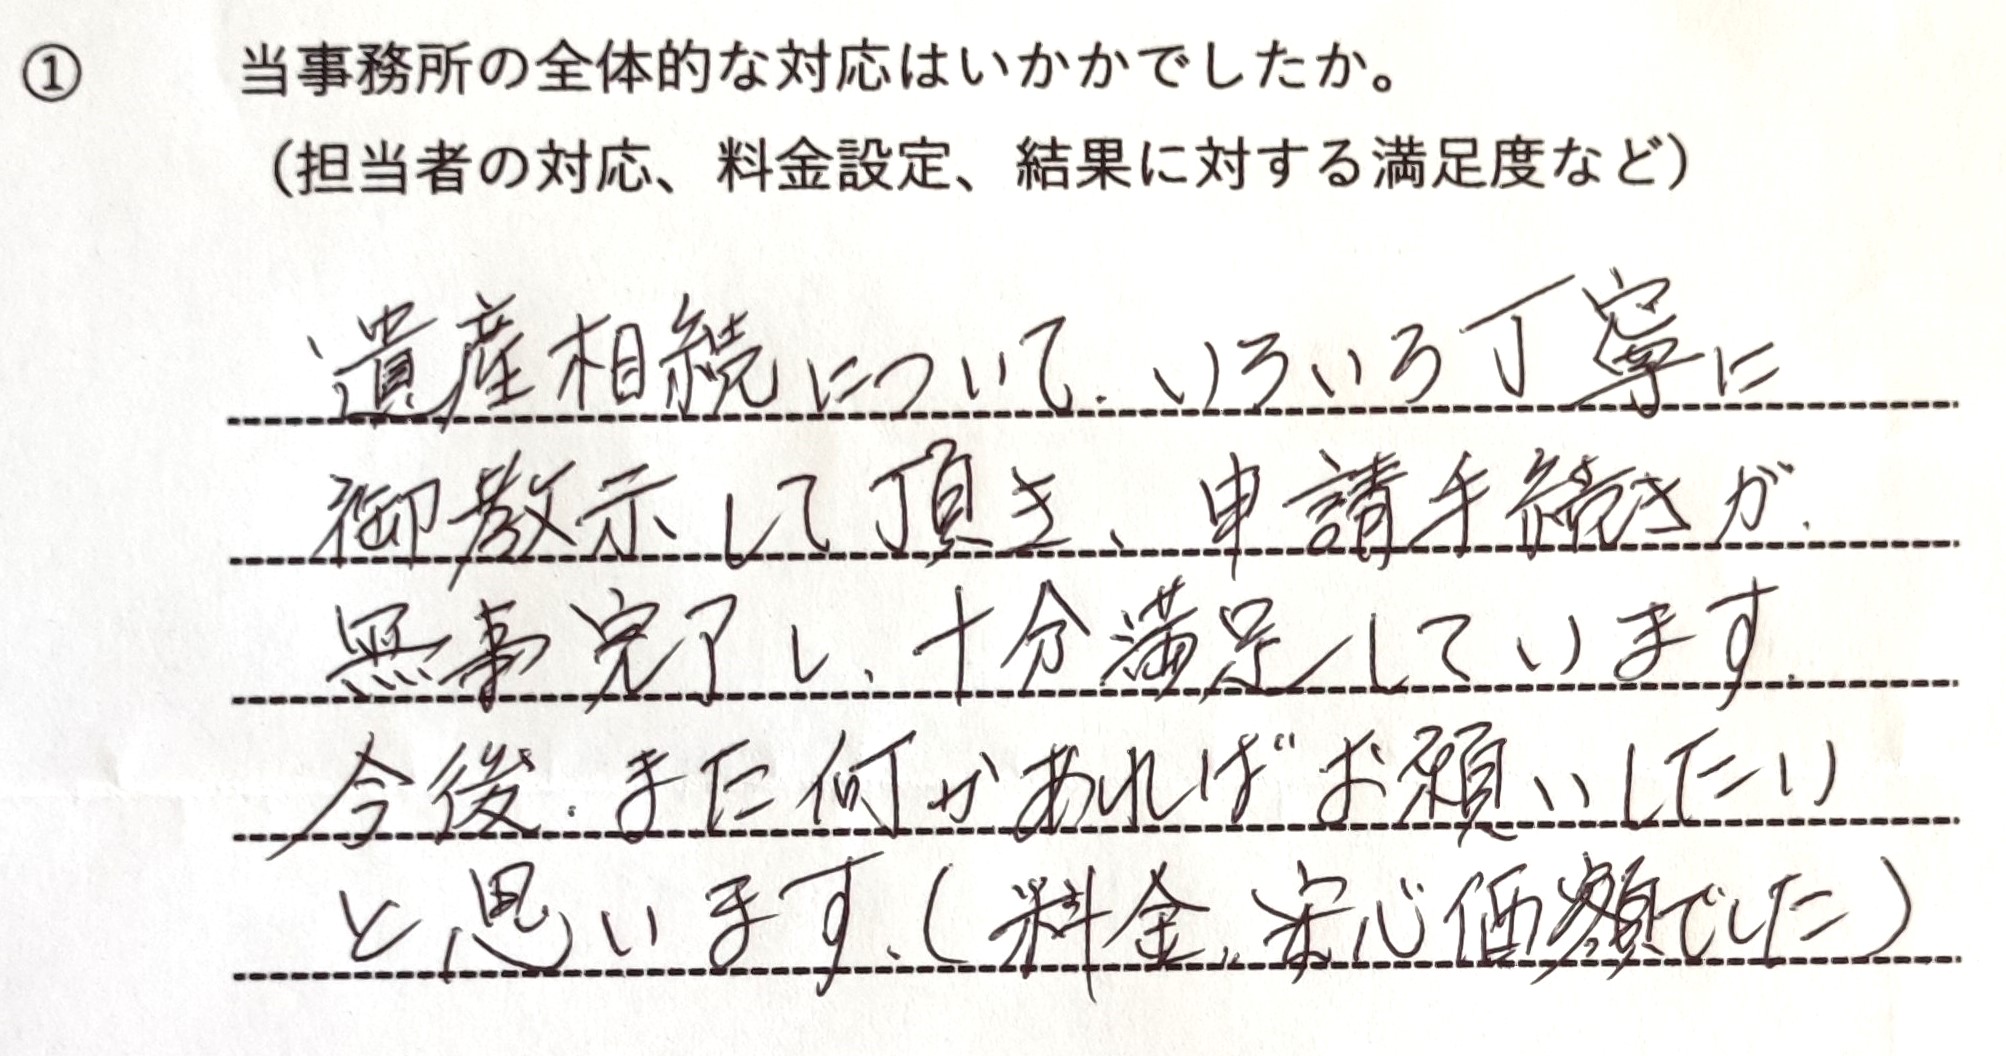 ① 当事務所の全体的な対応はいかかでしたか。
（担当者の対応、料金設定、結果に対する満足度など）
遺産相続について、いろいろ丁寧に
御教示して頂き、申請手続きが、
無事完了し、十分満足しています。
今後、また何かあればお願いしたい
と思います。（料金、安心価額でした）